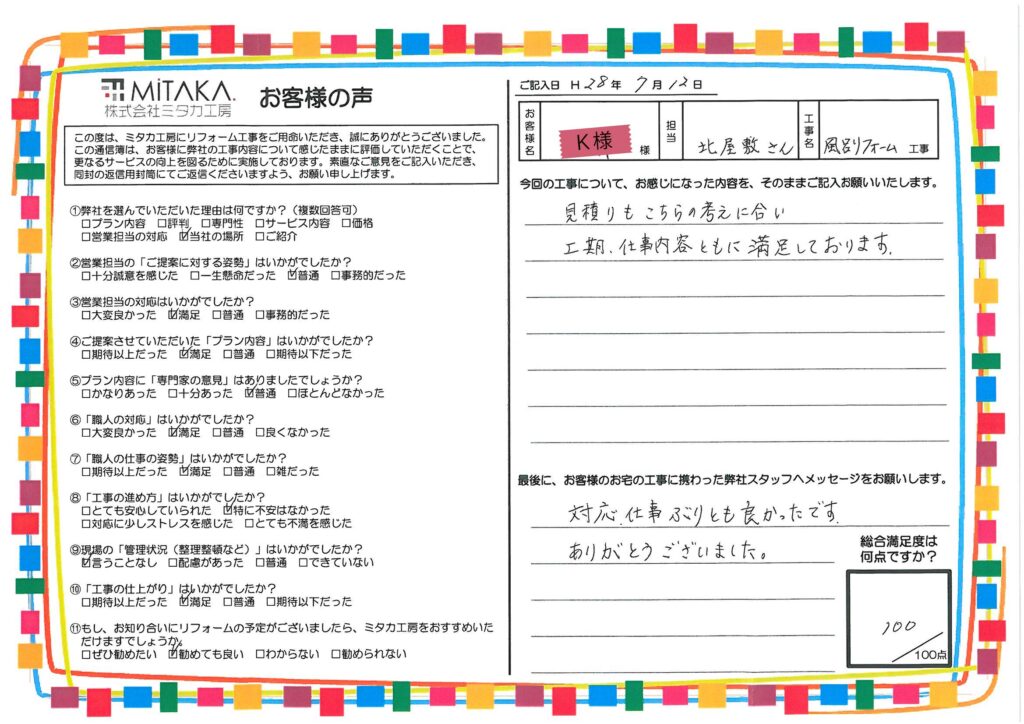 MiTAKA.
株式会社ミタカ工房
お客様の声
この度は、ミタカ工房にリフォーム工事をご用命いただき、誠にありがとうございました。
この通信簿は、お客様に弊社の工事内容について感じたままに評価していただくことで、
更なるサービスの向上を図るために実施しております。素直なご意見をご記入いただき、
同封の返信用封筒にてご返信くださいますよう、お願い申し上げます。
①弊社を選んでいただいた理由は何ですか?(複数回答可)
□プラン内容 □評判 □専門性 □サービス内容 □価格
□営業担当の対応 ☑当社の場所 □ご紹介
②営業担当の「ご提案に対する姿勢」はいかがでしたか?
□十分誠意を感じた □一生懸命だった ☑普通 □事務的だった
③営業担当の対応はいかがでしたか?
□大変良かった ☑満足 □普通 □事務的だった
④ご提案させていただいた「プラン内容」はいかがでしたか?
□期待以上だった ☑満足 □普通 □期待以下だった
⑤プラン内容に「専門家の意見」はありましたでしょうか?
□かなりあった □十分あった ☑普通 □ほとんどなかった
⑥「職人の対応」はいかがでしたか?
□大変良かった ☑満足 □普通 □良くなかった
⑦「職人の仕事の姿勢」はいかがでしたか?
□期待以上だった ☑満足 □普通 □雑だった
⑧「工事の進め方」はいかがでしたか?
□とても安心していられた ☑特に不安はなかった
□対応に少しストレスを感じた □とても不満を感じた
⑨現場の「管理状況(整理整頓など)」はいかがでしたか?
☑言うことなし □配慮があった □普通 □できていない
⑩「工事の仕上がり」はいかがでしたか?
□期待以上だった ☑満足 □普通 □期待以下だった
⑪もし、お知り合いにリフォームの予定がございましたら、ミタカ工房をおすすめいた
だけますでしょうか。
□ぜひ勧めたい ☑勧めても良い □わからない □勧められない
ご記入日 H 28年 7月 12日
お客様名 K様 様 担当 北屋敷さん 工事名 風呂リフォーム 工事
今回の工事について、お感じになった内容を、そのままご記入お願いいたします。
見積りもこちらの考えに合い
工期、仕事内容ともに満足しております。
最後に、お客様のお宅の工事に携わった弊社スタッフへメッセージをお願いします。
対応、仕事ぶりとも良かったです。
ありがとうございました。
総合満足度は
何点ですか?
100
/100点